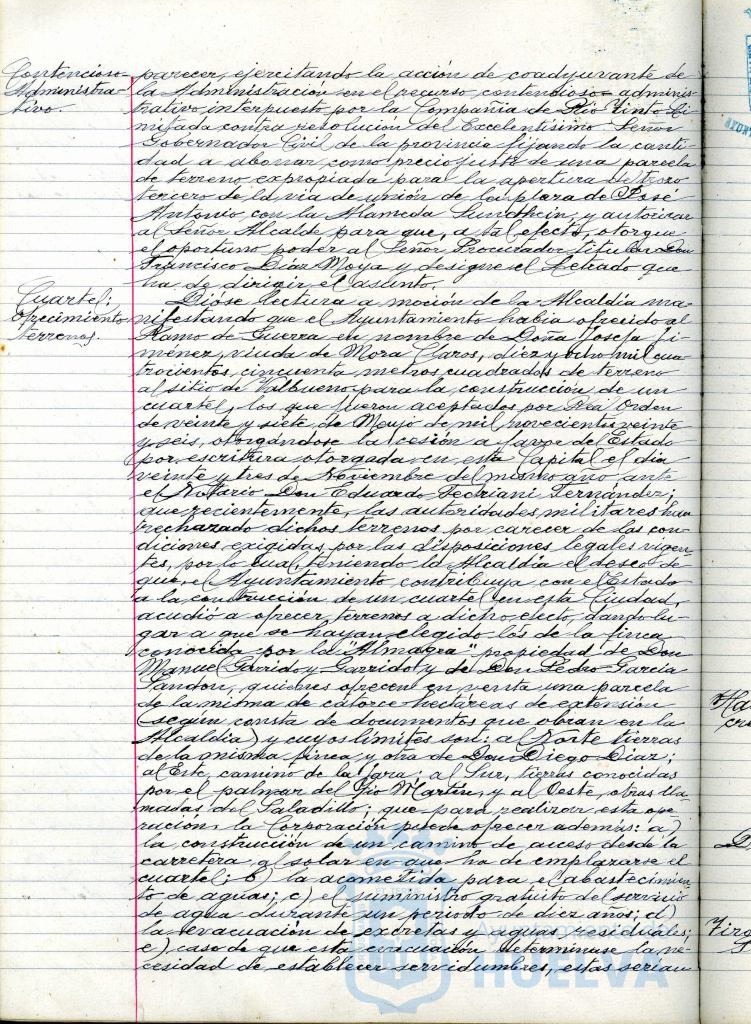 Contencioso-
Administra-
tivo.
parecer, ejercitando la acción de coadyuvante de
la Administración en el recurso contencioso-adminis-
trativo interpuesto por la Compañia de Rio Tinto Li-
mitada contra resolución del Excelentísimo Señor
Gobernador Civil de la provincia fijando la canti-
dad a abonar como precio justo de una parcela
de terreno expropiada para la apertura del trozo
tercero de la via de unión de la plaza de José
Antonio con la Alameda Sundhein, y autorizar
al Señor Alcalde para que, a tal efecto, otorgue
el oportuno poder al Señor Procurador titular Don
Francisco Díaz Moya y designe el Letrado que
ha de dirigir el asunto.
Cuartel;
ofrecimiento
terrenos.
Dióse lectura a moción de la Alcaldía ma-
nifestando que el Ayuntamiento habia ofrecido al
Ramo de Guerra en nombre de Doña Josefa Ji-
ménez, viuda de Mora Claros, diez y ocho mil cua-
trocientos cincuenta metros cuadrados de terreno
al sitio de Valbueno para la construcción de un
cuartel, los que fueron aceptados por Real Orden
de veinte y siete de Mayo de mil novecientos veinte
y seis, otorgándose la cesión a favor de Estado
por escritura otorgada en esta Capital el dia
veinte y tres de Noviembre del mismo año ante
el Notario Don Eduardo Fedriani Fernández;
que recientemente, las autoridades militares han
rechazado dichos terrenos por carecer de las con-
diciones exigidas por las disposiciones legales vigen-
tes, por lo cual, teniendo la Alcaldía el deseo de
que el Ayuntamiento contribuya con el Estado
a la construcción de un cuartel en esta Ciudad,
acudió a ofrecer terrenos a dicho efecto, dando lu-
gar a que se hayan elegido los de la finca
conocida por la "Almagra" propiedad de Don
Manuel Garrido y Garrido y de Don Pedro Garcia
quienes ofrecen en venta una parcela
de la misma de catorce hectáreas de extensión
(según consta de documentos que obran en la
Alcaldía) y cuyos limites son: al Norte tierras
de la misma finca y otra de Don Diego Diaz;
al Este, camino de la Jara; al Sur, tierras conocidas
por el palmar del Tio Martin, y al Oeste, otras lla-
madas del Saladillo; que para realizar esta ope-
ración, la Corporación puede ofrecer además: a)
la construcción de un camino de acceso desde la
carretera al solar en que ha de emplazarse el
cuartel; b) la acometida para el abastecimien-
to de aguas; c) el suministro gratuito del servicio
de agua durante un periodo de diez años; d)
la evacuación de excretas y aguas residuales;
e) caso de que esta evacuación determinase la ne-
cesidad de establecer servidumbres, estas serían
HUELVA